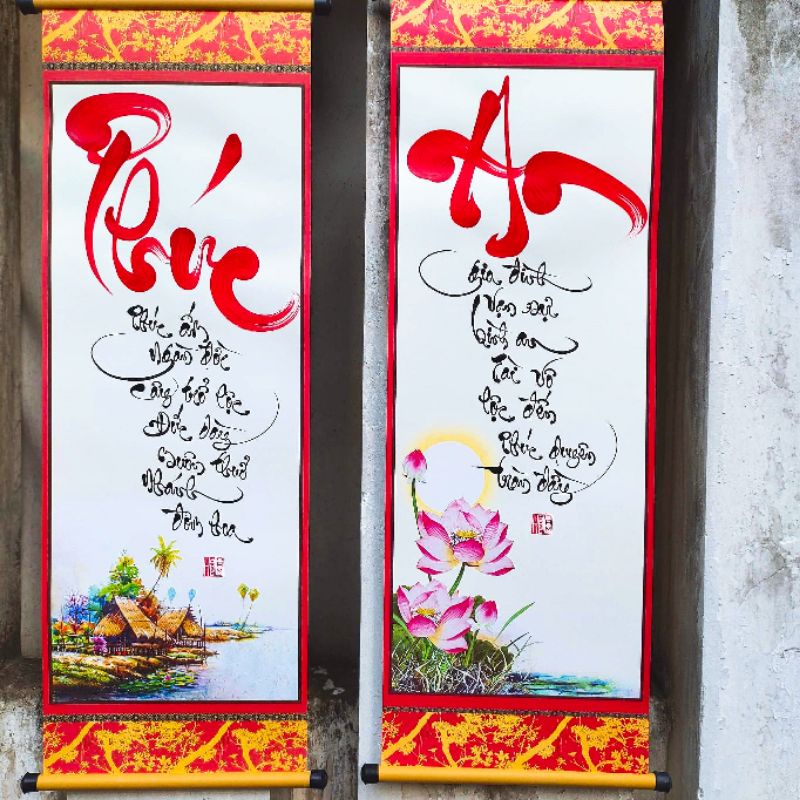 Phúc
Phúc ấm
Ngàn đời
Càng trổ lộc
Đức dày
muôn thuở
Nhánh
đơm hoa
An
Gia đình
Vạn đại
bình an
Tài vô
lộc đến
Phúc duyên
tràn đầy